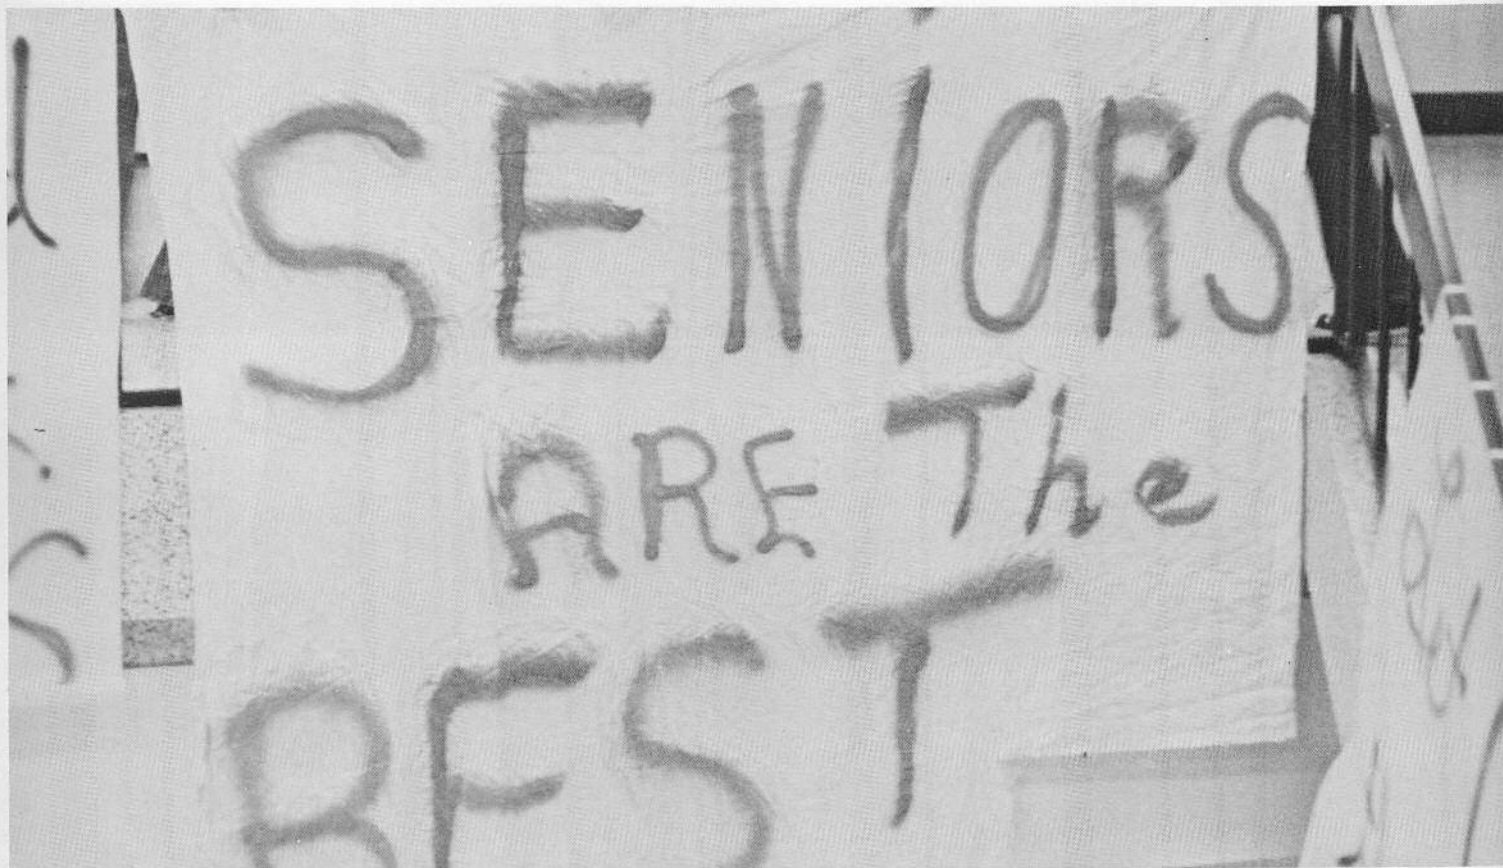 SENIORS
ARE The
BEST